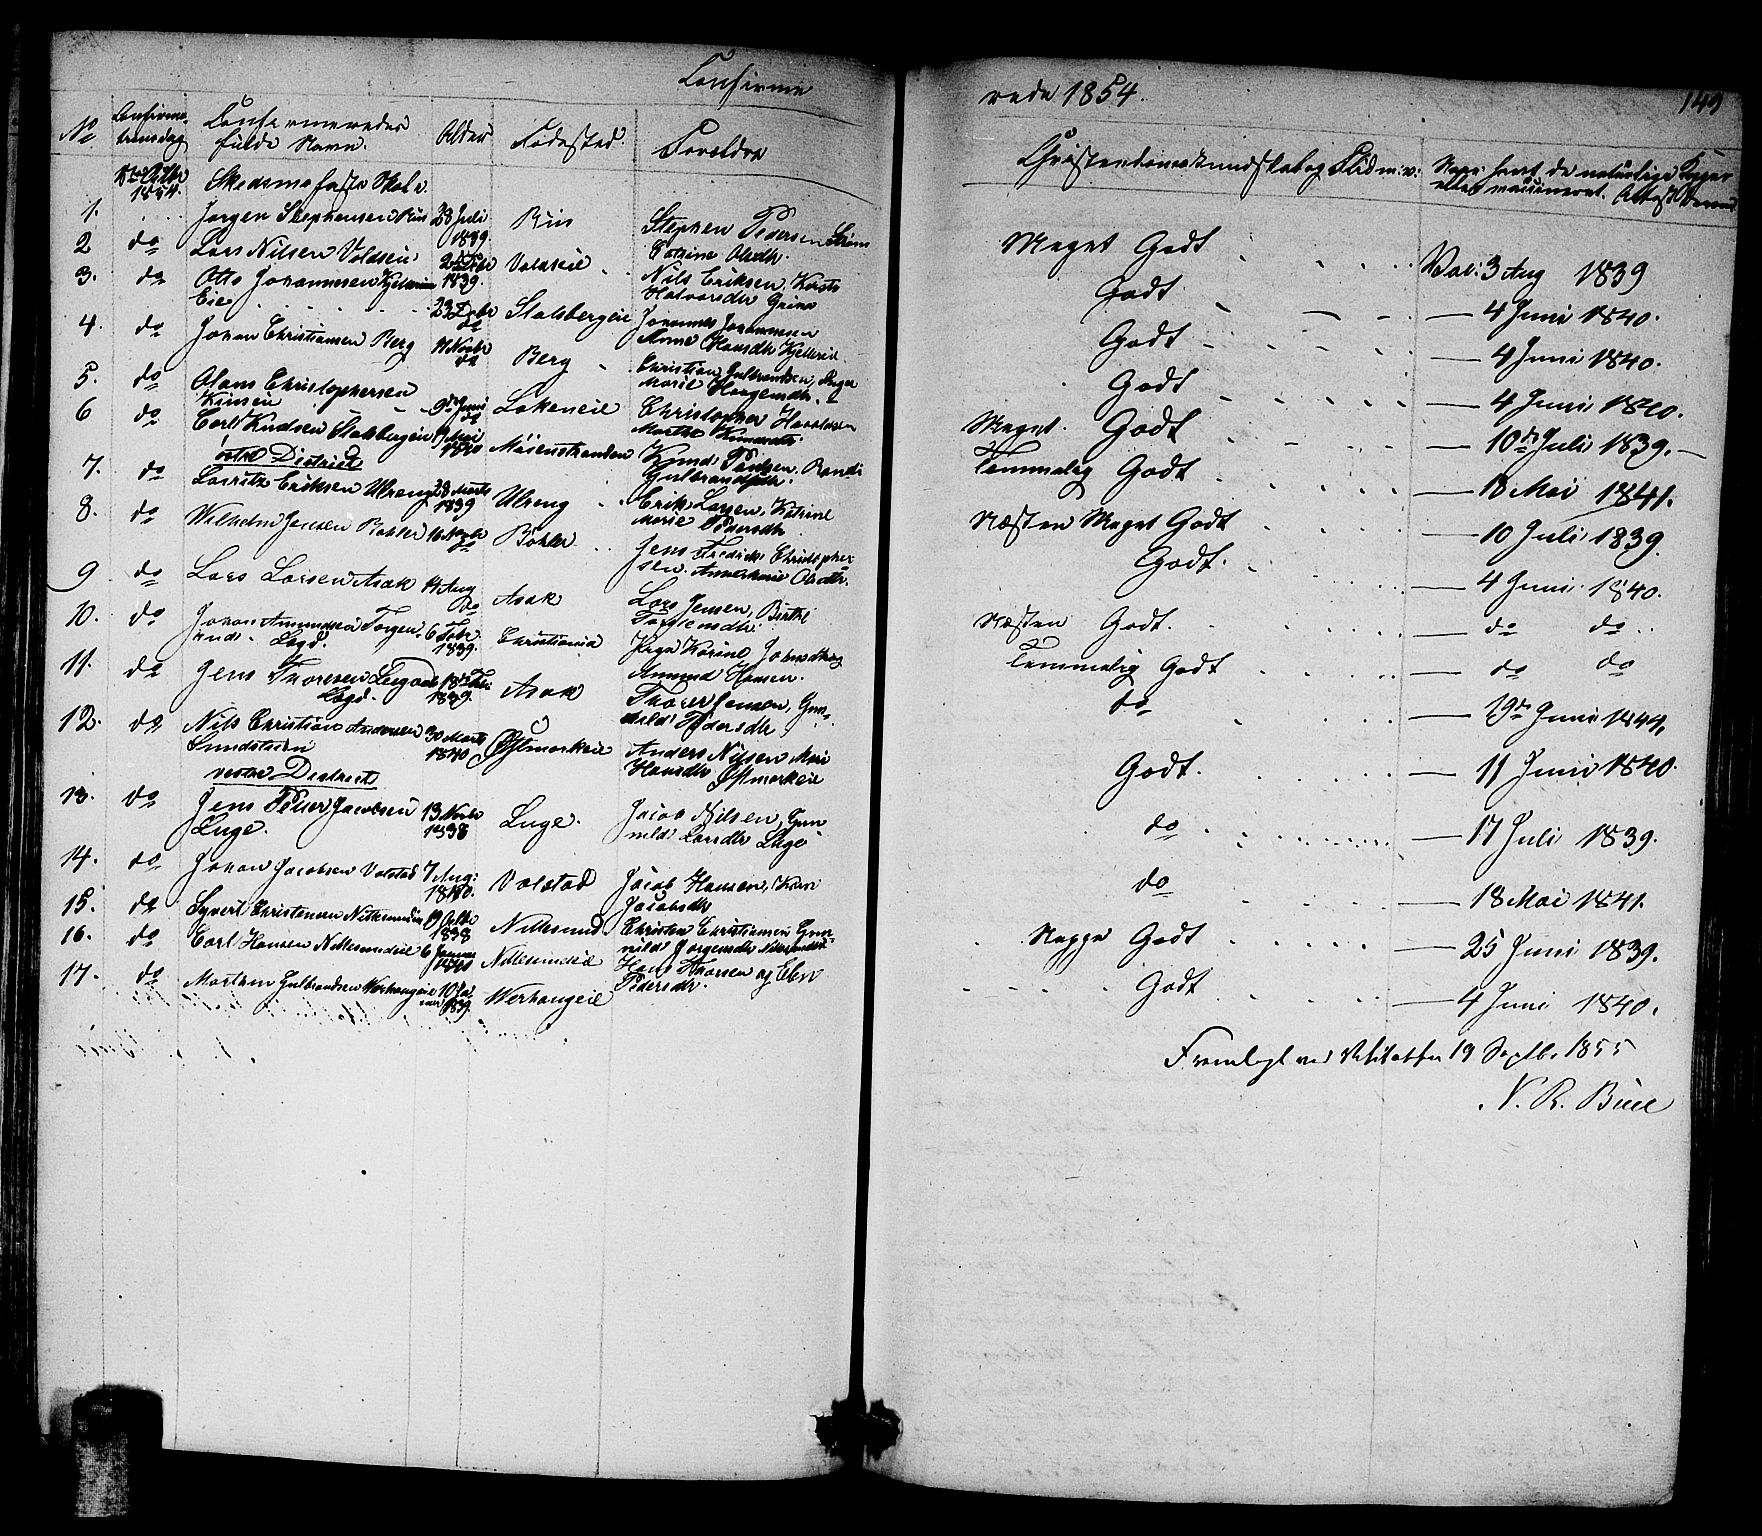 Confirme
rede 1854.
149
No
Confirma-
tionsdag
Confirmeredes
fulde Navn.
Alder
Fødested.
Forældre
Christendomskundskab og Flid m: v:
Nagr havt de naturlige Kopper
eller vaccineret. Attest derom
1854.
Skedsmo faste Skole
1. Jørgen Stephensen Riis 28 Juli 1839 Riis Stephen Pedersen
Catrine Olsdtr. Meget Godt Vac: 3 Aug 1839
2 do Lars Nilsen Voldseie 1839. Voldseie Nils Eriksen, Kirsti
Halvorsdtr Godt 4 Juni 1840.
3. do Otto Johannesen
Eie 23 Decbr do Stalsbergeie Johannes Johannesen
Anne Hansdtr Godt 4 Juni 1840.
4. do Johan Christiansen Berg 17 Novbr do Berg Christian Gulbrandsen, Inger
Marie Godt 4 Juni 1840.
5. do Olaus Christophersen
9de Juni do Lokeneie Christopher Haraldsen
Marthe Meget Godt 10de Juli 1839.
6 do Carl Knudsen Stalsbergeie 17 Mai 1840 Knud Paulsen. Randi
Gulbrandsdtr. Temmelig Godt 18 Mai 1841.
østre District
7. do Lauritz Eriksen Ulreng 28 Marts 1839 Ulreng Erik Larsen, Katrine
Marie Pedersdtr Næsten Meget Godt 10 Juli 1839.
8. do Wilhelm Jensen Bøhler 16 Novbr do Bøhler Jens Fredrik Christopher-
sen. Annemarie Olsdtr. Godt. 4 Juni 1840.
9 do Lars Larsen Asak 14 Aug do Asak Lars Jensen, Birthe
Næsten Godt. do do
10. do Johan Amundsen
Logd. 6 Febr 1839. Christiania Karine Johnsdtr og
Amund Hansen. Temmelig Godt do do
11. do Jens Thoresen
Logd. 1839. Asak Thorer Jensen, Gun-
hild Pedersdtr do 19de Juni 1844.
12. do Nils Christian Andersen
30 Marts 1840 Østmarkeie Anders Nilsen Mari
Hansdtr Østmarkeie Godt. 11 Juni 1840.
vestre District
13. do Jens Peter Jacobsen
Luge. 13 Novbr 1838 Luge. Jacob Nilsen, Gun
hild Larsdtr Luge do 17 Juli 1839.
14. do Johan Jacobsen Valstad 7 Aug: 1840. Valstad Jacob Hansen, Kari
Jacobsdtr do 18 Mai 1841.
15. do Syvert Christensen Nittesundeie 19 Octbr 1838 Nittesund Christen Christiansen Gun-
hild Jørgensdtr Neppe Godt 25 Juni 1839.
16. do Carl Hansen Nittesundeie 6 Januar 1840 Nittesundeie Hans Thorsen og Eline
Pedersdtr. Godt 4 Juni 1840.
17. do Morthen Gulbrandsen Werhaugeie 10 Ja
nuar 1839. Werhaugeie
Fremlagt ved Visitatsen 19 Septb. 1855
N. R. Bull